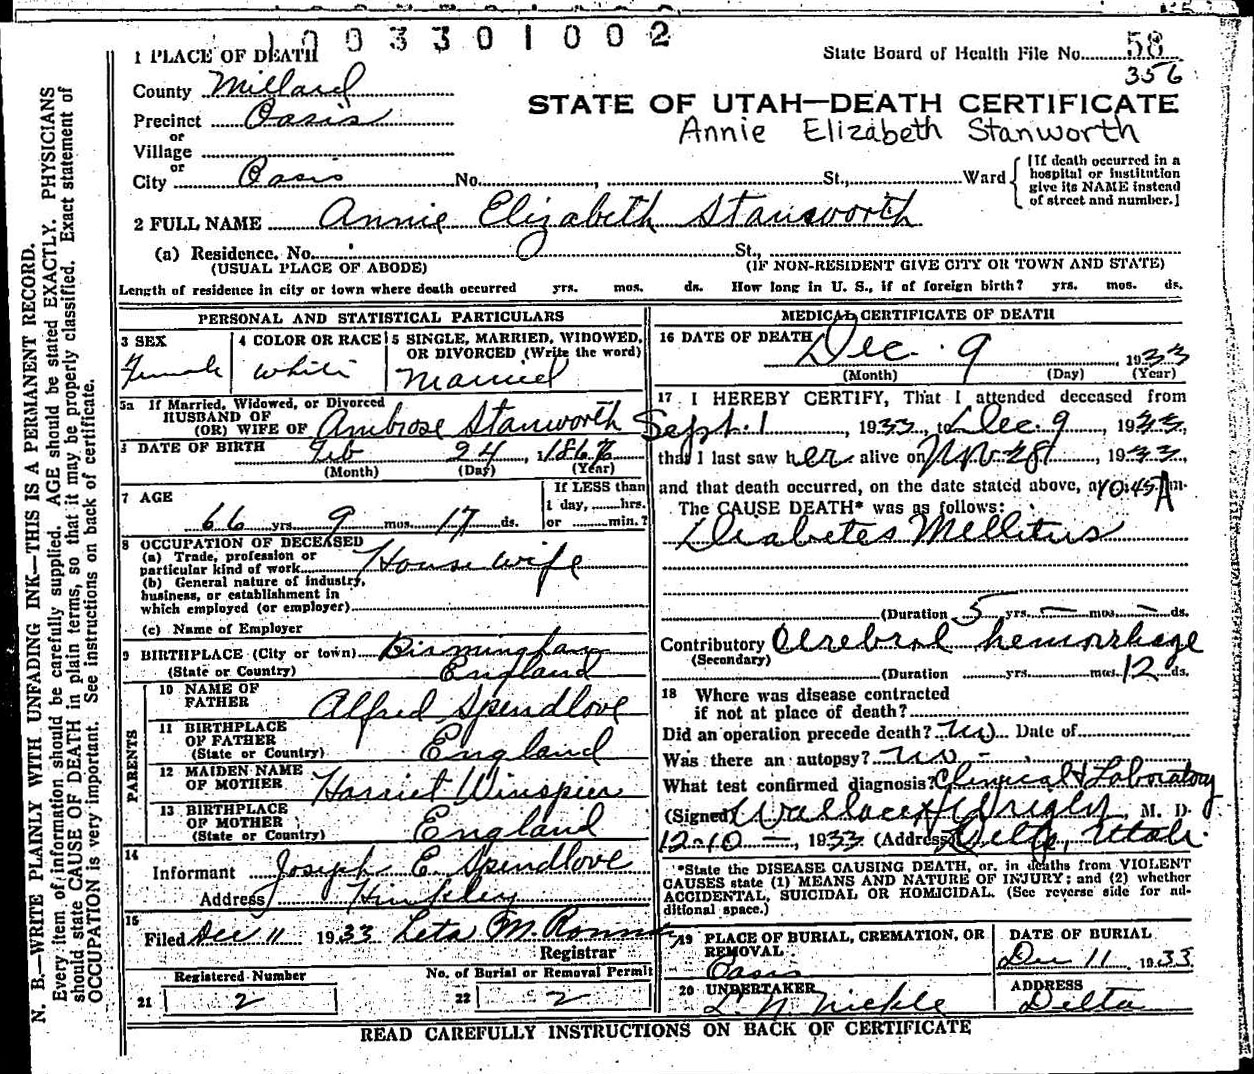 1003301002
1 PLACE OF DEATH
State Board of Health File No. 58
356
County Millard
STATE OF UTAH—DEATH CERTIFICATE
Precinct Oasis
Annie Elizabeth Stanworth
or
Village
or
City Oasis No. , St., Ward
[If death occurred in a
hospital or institution
give its NAME instead
of street and number.]
2 FULL NAME Annie Elizabeth Stansworth
(a) Residence. No. St.,
(USUAL PLACE OF ABODE) (IF NON-RESIDENT GIVE CITY OR TOWN AND STATE)
Length of residence in city or town where death occurred yrs. mos. ds. How long in U. S., if of foreign birth? yrs. mos. ds.
PERSONAL AND STATISTICAL PARTICULARS
3 SEX
Female
4 COLOR OR RACE
White
5 SINGLE, MARRIED, WIDOWED,
OR DIVORCED (Write the word)
Married
5a If Married, Widowed, or Divorced
HUSBAND OF
(OR) WIFE OF Ambrose Stanworth
DATE OF BIRTH Feb 24, 186
(Month) (Day) (Year)
7 AGE
66 yrs. 9 mos. 17 ds.
If LESS than
1 day, hrs.
or min.?
8 OCCUPATION OF DECEASED
(a) Trade, profession or
particular kind of work House wife
(b) General nature of industry,
business, or establishment in
which employed (or employer)
(c) Name of Employer
9 BIRTHPLACE (City or town) Birmingham
(State or Country) England
PARENTS
10 NAME OF
FATHER Alfred Spendlove
11 BIRTHPLACE
OF FATHER
(State or Country) England
12 MAIDEN NAME
OF MOTHER Harriet Winspier
13 BIRTHPLACE
OF MOTHER
(State or Country) England
14
Informant Joseph E. Spendlove
Address Hinkley
15
Filed Dec 11 1933 Leta M.
Registrar
Registered Number
21 2
No. of Burial or Removal Permit
22 2
MEDICAL CERTIFICATE OF DEATH
16 DATE OF DEATH Dec. 9 1933
(Month) (Day) (Year)
17 I HEREBY CERTIFY, That I attended deceased from
Sept. 1, 1933, to Dec. 9 1933,
that I last saw her alive on Nov 28, 1933,
and that death occurred, on the date stated above, at 10:45 A m.
The CAUSE DEATH* was as follows:
Diabetes Mellitus
(Duration 5 yrs. — mos. — ds.
Contributory Cerebral hemorrhage
(Secondary)
(Duration yrs. mos. 12 ds.
18 Where was disease contracted
if not at place of death?
Did an operation precede death? no Date of
Was there an autopsy? no -
What test confirmed diagnosis? Clinical & Laboratory
(Signed) Wallace M. D.
12-10 —, 1933 (Address) Delta, Utah.
*State the DISEASE CAUSING DEATH, or, in deaths from VIOLENT
CAUSES state (1) MEANS AND NATURE OF INJURY; and (2) whether
ACCIDENTAL, SUICIDAL OR HOMICIDAL. (See reverse side for ad-
ditional space.)
19 PLACE OF BURIAL, CREMATION, OR
REMOVAL
Oasis
DATE OF BURIAL
Dec 11 1933
20 UNDERTAKER
L. N. Nickle
ADDRESS
Delta
READ CAREFULLY INSTRUCTIONS ON BACK OF CERTIFICATE
N. B.—WRITE PLAINLY WITH UNFADING INK—THIS IS A PERMANENT RECORD.
Every item of information should be carefully supplied. AGE should be stated EXACTLY. PHYSICIANS
should state CAUSE OF DEATH in plain terms, so that it may be properly classified. Exact statement of
OCCUPATION is very important. See instructions on back of certificate.